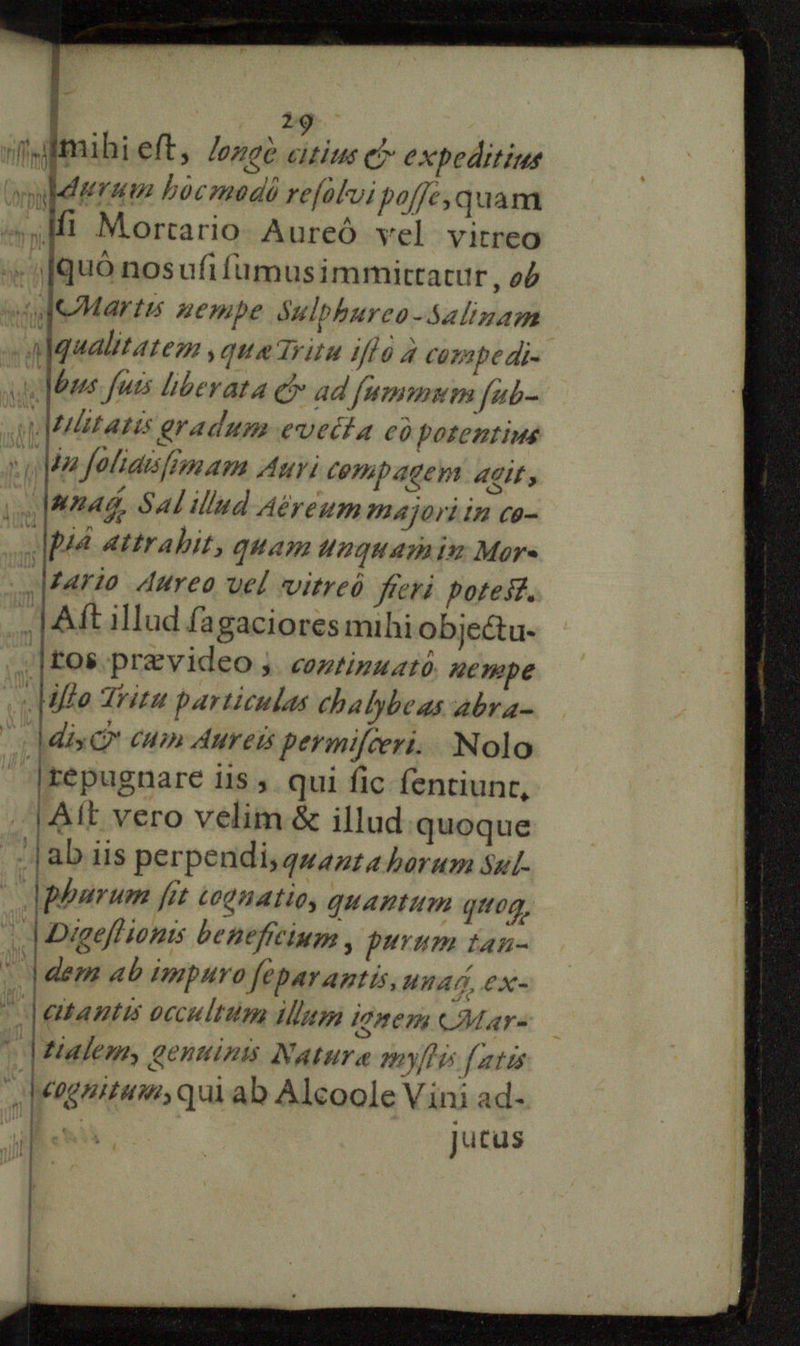 29
mihi eſt, longè citius & expeditius
aurum hôc modô reſolvi poſſe, quam
ſi Mortario Aureô vel vitreo
quô nos uſi ſumus immittatur, ob
Martis nempe Sulphureo-Salinam
qualitatem, quæ Tritu iſtô à compedi-
bus ſuis liberata & ad ſummum ſub-
tilitatis gradum evecta eò potentius
in ſolidisſimam Auri compagem agit,
unaq́, Sal illud Aëreum majori in co-
piâ attrahit, quam unquam in Mor-
tario Aureo vel vitreô fieri poteſt.
Aſt illud ſagaciores mihi objectu-
ros prævideo; continuatô nempe
iſto Tritu particulas chalybeas abra-
di, & cum Aureis permiſceri. Nolo
repugnare iis, qui ſic ſentiunt,
Aſt vero velim & illud quoque
ab iis perpendi, quanta horum Sul-
phurum ſit cognatio, quantum quoq́,
Digeſtionis beneficium, purum tan-
dem ab impuro ſeparantis, unaq́, ex-
citantis occultum illum ignem Mar-
tialem, genuinis Naturæ myſtis ſatis
cognitum, qui ab Alcoole Vini ad-
jutus